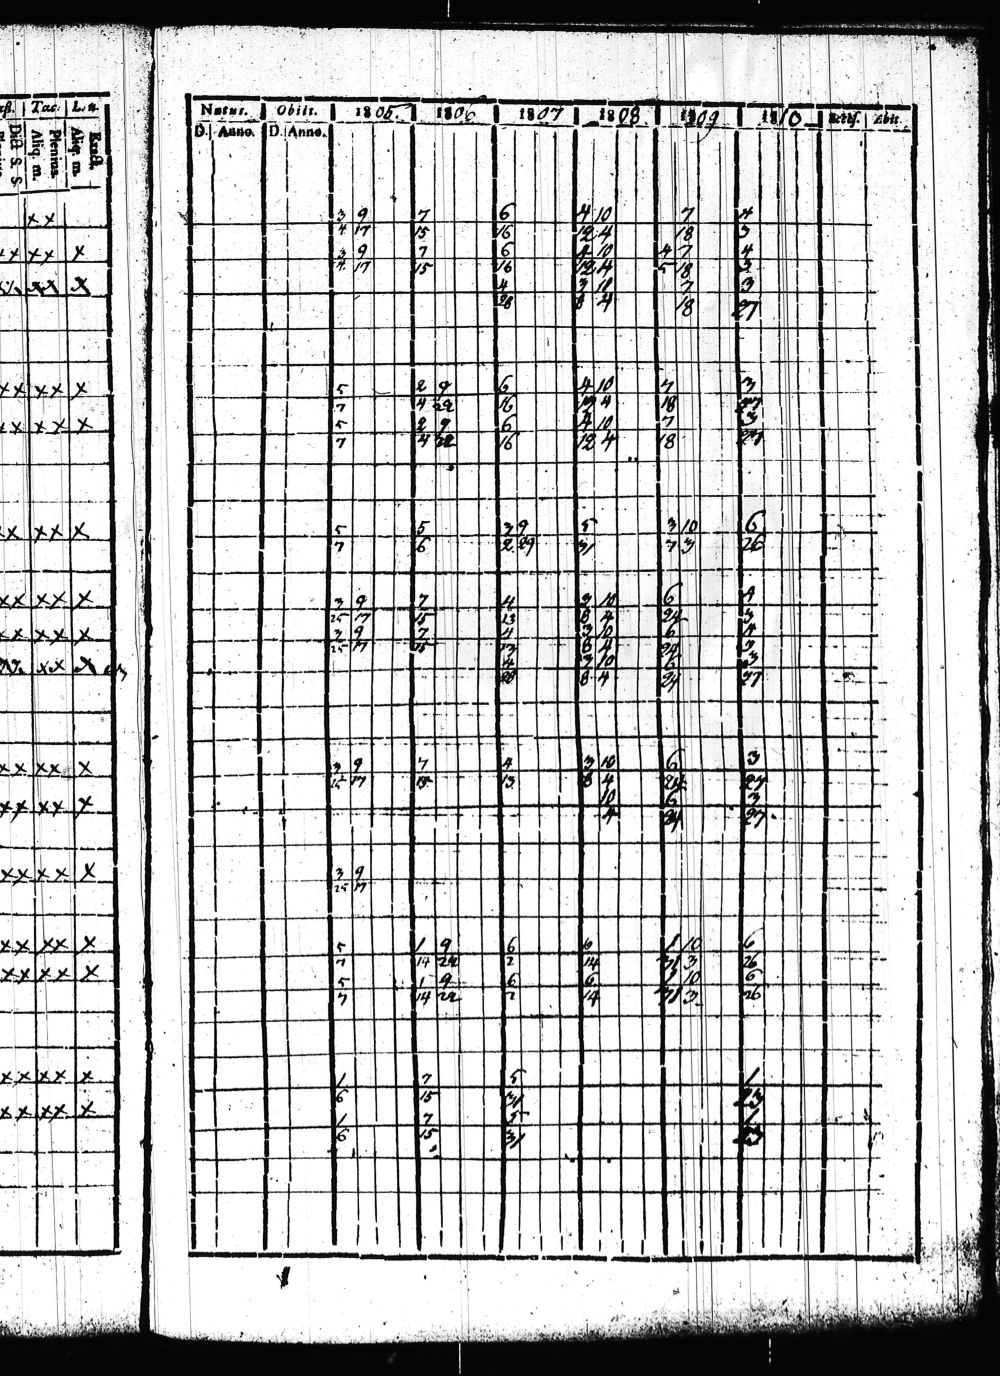 Tac. L. n.
Dict. S. S. Aliq. m. Plenius. Aliq. m. Exact.
Natus. Obiit. 1805. 1806 1807 1808 1809 1810 Accef. Abit.
D. Anno. D. Anno.
x x 3 9 7 6 4 10 7 4
4 17 15 16 12 4 18 3
x x x x 3 9 7 6 4 10 4 7 4
4 17 15 16 12 4 5 18 3
x x x 4 3 10 7 3
28 8 4 18 27
x x x x x 5 2 9 6 4 10 7 3
7 4 22 16 12 4 18 27
x x x x x 5 2 9 6 4 10 7 3
7 4 22 16 12 4 18 27
x x x x x 5 5 3 9 5 3 10 6
7 6 2 29 31 7 3 26
x x x x x 3 9 7 4 3 10 6 4
25 17 15 13 8 4 24 3
x x x x x 3 9 7 4 3 10 6 4
25 17 15 13 8 4 24 3
x x x 4 3 10 6 3
28 8 4 24 27
x x x x x 3 9 7 4 3 10 6 3
25 17 15 13 8 4 24 27
x x x x x 10 6 3
4 24 27
x x x x x 3 9
25 17
x x x x x 5 1 9 6 6 1 10 6
7 14 22 2 14 31 3 26
x x x x x 5 1 9 6 6 1 10 6
7 14 22 2 14 31 3 26
x x x x x 1 7 5 1
6 15 31 23
x x x x x 1 7 5 1
6 15 31 23